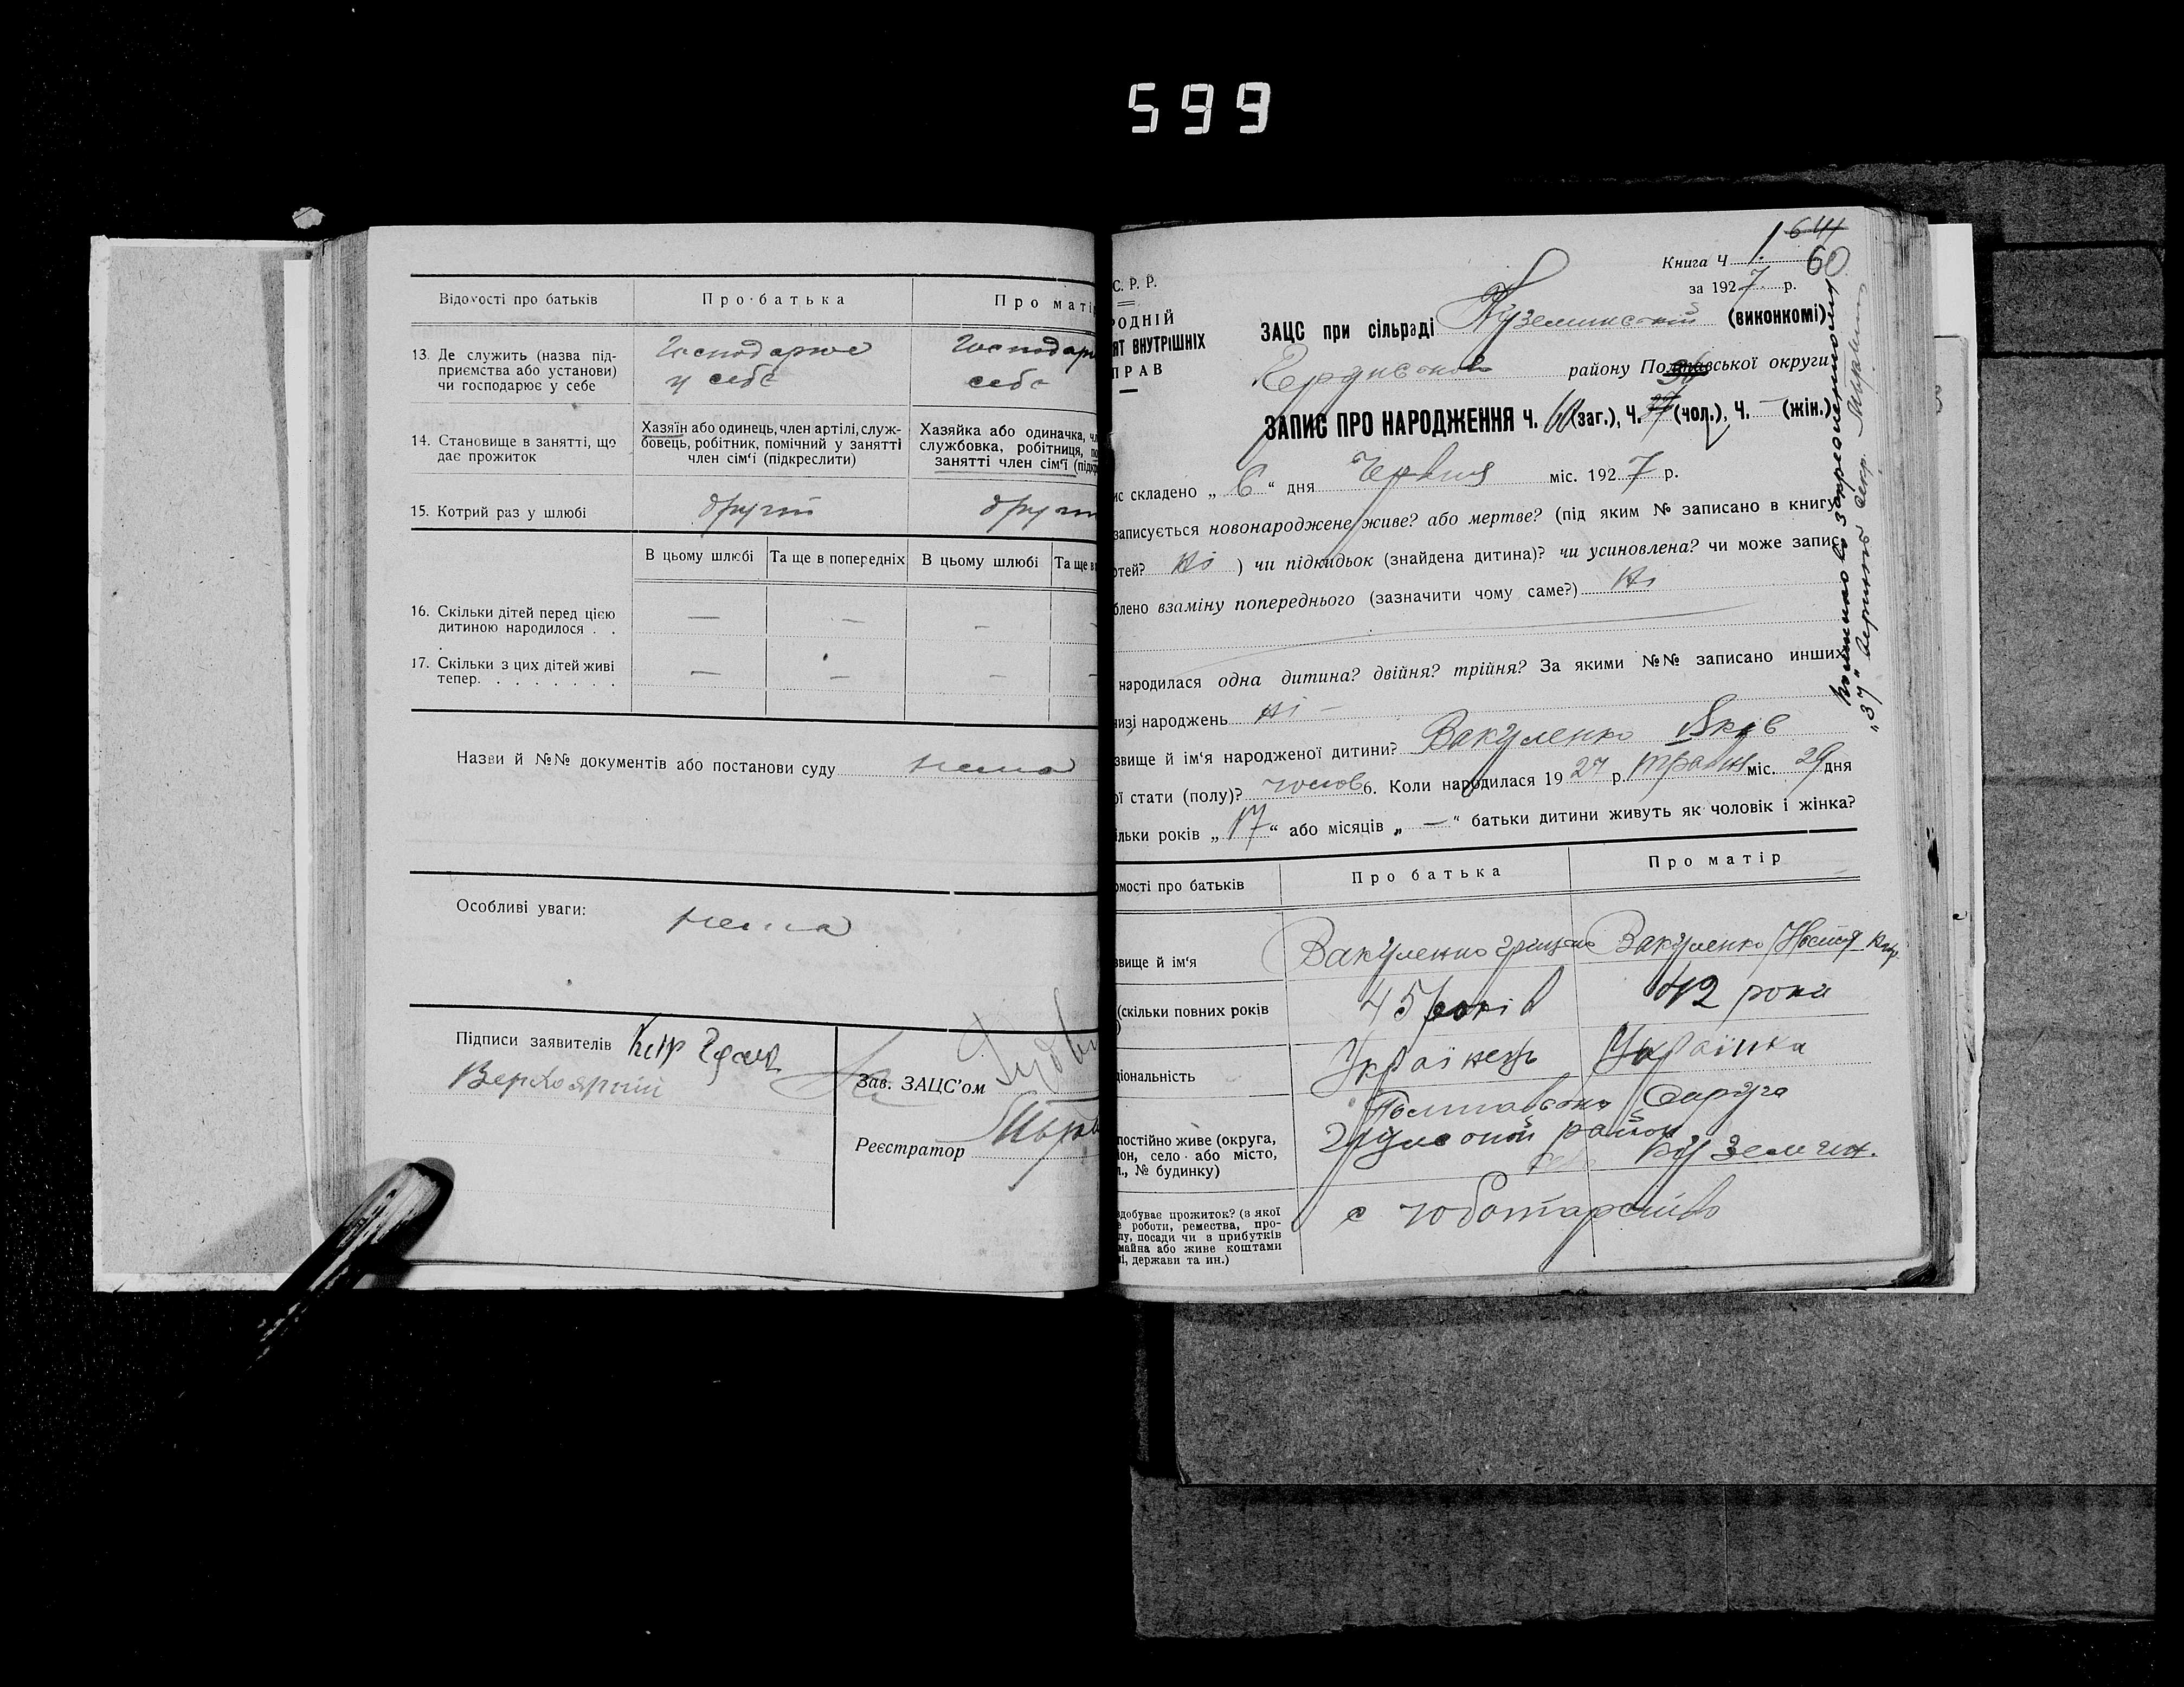 599
Відомості про батьків
Про батька
Про матір
13. Де служить (назва під-
приємства або установи)
чи господарює у себе
Господарює
у себе
Господар
себе
14. Становище в занятті, що
дає прожиток
Хазяїн або одинець, член артілі, служ-
бовець, робітник, помічний у занятті
член сім'ї (підкреслити)
Хазяйка або одиначка, чл
службовка, робітниця, по
занятті член сім'ї (підкр
15. Котрий раз у шлюбі
другий
В цьому шлюбі
Та ще в попередніх
В цьому шлюбі
Та ще в
16. Скільки дітей перед цією
дитиною народилося . .
— — — —
17. Скільки з цих дітей живі
тепер. . . . . . . .
— — — —
Назви й №№ документів або постанови суду нема
Особливі уваги:
нема
Підписи заявителів
Зав. ЗАЦС'ом
Реєстратор
1 644
Книга Ч 1. 60
за 1927 р.
С. Р. Р.
РОДНІЙ
ЯТ ВНУТРІШНІХ
ПРАВ
ЗАЦС при сільраді Куземинській (виконкомі)
району Полтавської округи
ЗАПИС ПРО НАРОДЖЕННЯ Ч. 60 (заг.), Ч. 37 (чол.), Ч. — (жін.)
ис складено „ 6 “ дня Червня міс. 1927 р.
записується новонароджене живе? або мертве? (під яким № записано в книгу
ртей? Ні ) чи підкидьок (знайдена дитина)? чи усиновлена? чи може запис
блено взаміну попереднього (зазначити чому саме?) Ні
народилася одна дитина? двійня? трійня? За якими №№ записано инших
низі народжень ні —
звище й ім'я народженої дитини? Вакуленко Яків
ої стати (полу)? чолов 6. Коли народилася 1927 р. травня міс. 29 дня
ільки років „ 17 “ або місяців „ — “ батьки дитини живуть як чоловік і жінка?
омості про батьків
Про батька
Про матір
звище й ім'я
Вакуленко
Вакуленко
(скільки повних років
45 років
42 роки
ціональність
Українець
Українка
постійно живе (округа,
йон, село або місто,
л., № будинку)
Полтавська Округа
район
Куземин.
здобуває прожиток? (з якої
е роботи, ремества, про-
лу, посади чи з прибутків
майна або живе коштами
лі, держави та ин.)